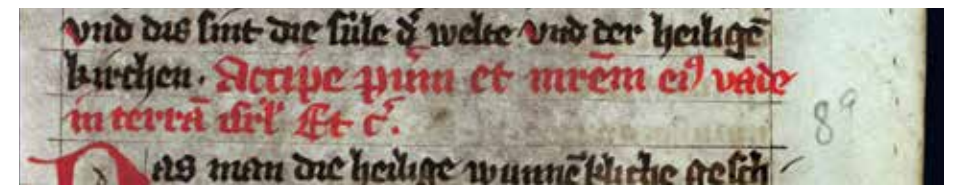 vnd das sint die súle d̛ welte vnd der heiligē
kirchen. Accipe pūm et mrēm eiꝰ vade
in terrā isrl̄ Et c̄.
Das man die heilige wunnēkliche gesch
89